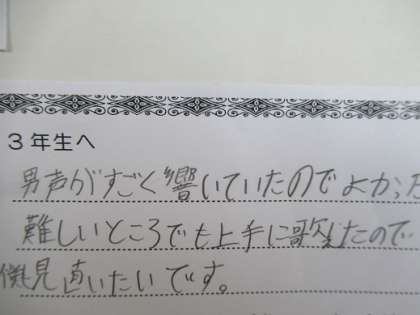 3年生へ
男声がすごく響いていたのでよかった
難しいところでも上手に歌えたので
見直いたいです。